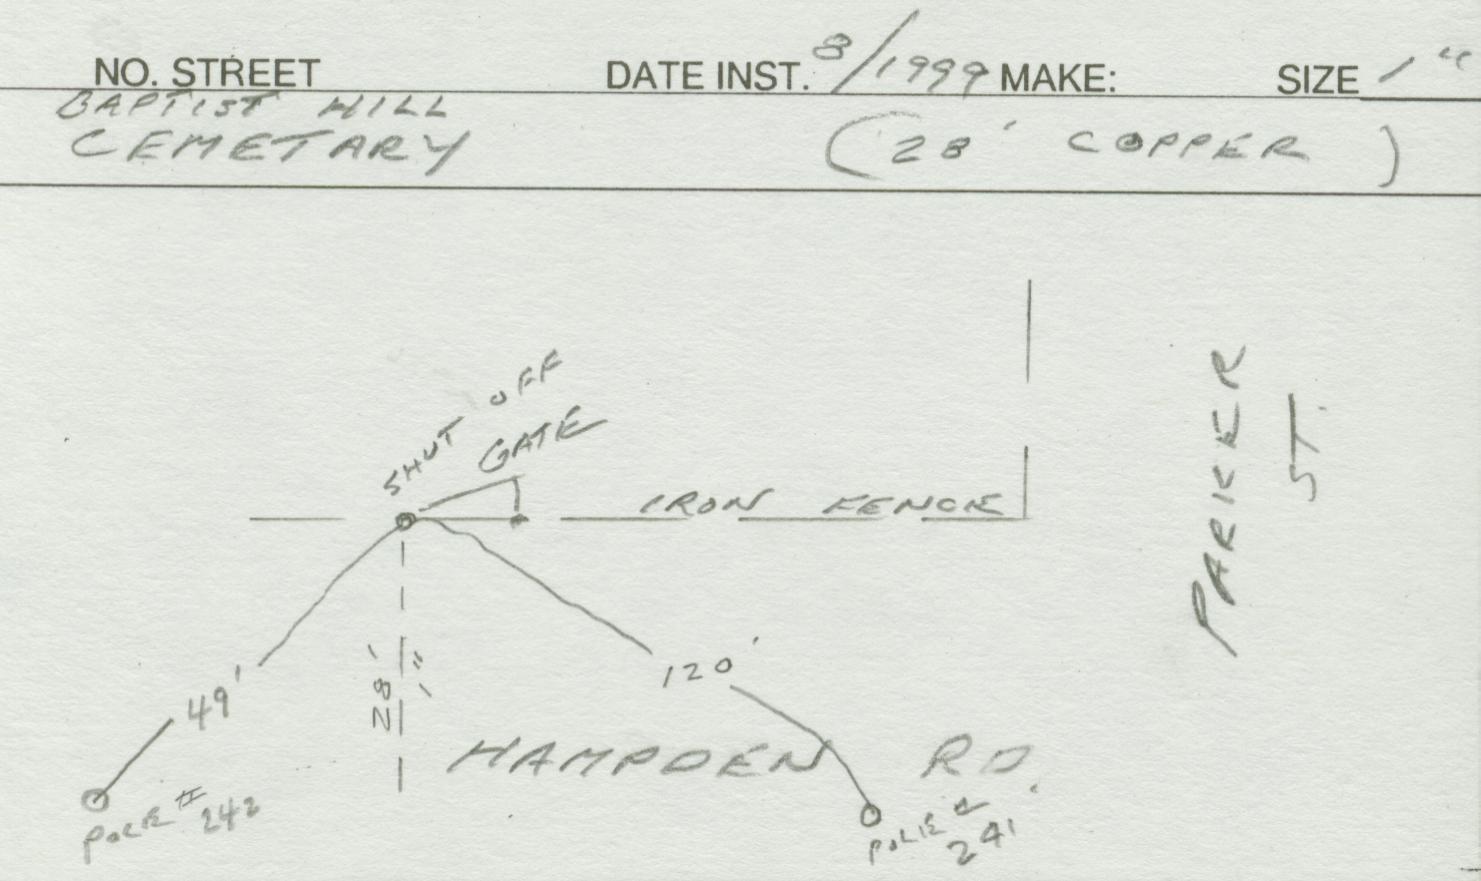 NO. STREET DATE INST. 8/1999 MAKE: SIZE 1"
BAPTIST HILL
CEMETARY (28' COPPER)
SHUT OFF
GATE
IRON FENCE
PARKER ST.
49'
28'
1"
120'
HAMPDEN RD.
POLE # 242
POLE # 241